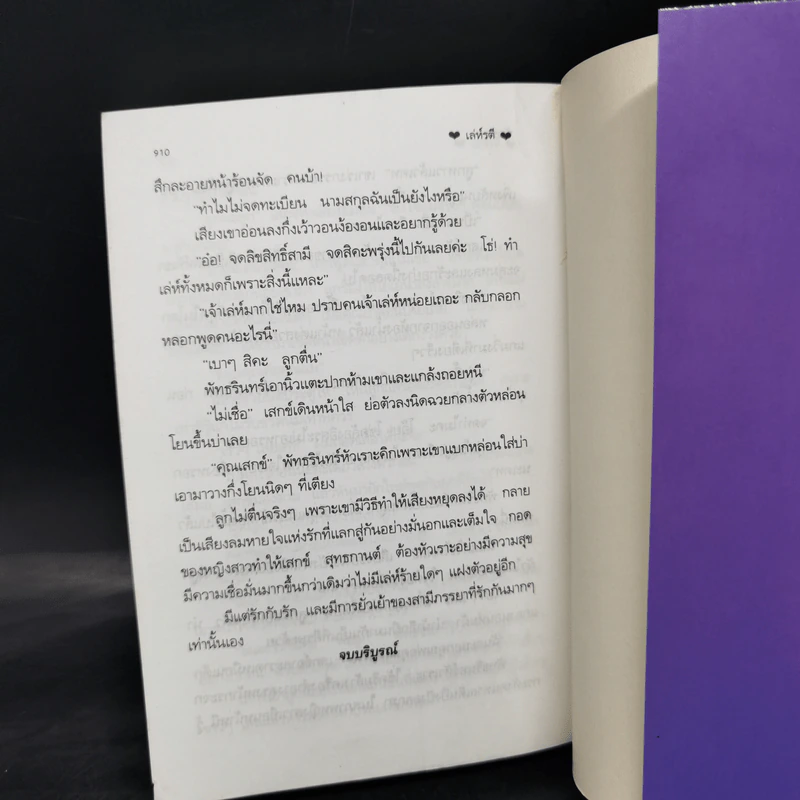 910
❤ เล่ห์รตี ❤
สึกละอายหน้าร้อนจัด คนบ้า!
"ทำไมไม่จดทะเบียน นามสกุลฉันเป็นยังไงหรือ"
เสียงเขาอ่อนลงกึ่งเว้าวอนง้องอนและอยากรู้ด้วย
"อ๋อ! จดลิขสิทธิ์สามี จดสิคะพรุ่งนี้ไปกันเลยค่ะ โธ่! ทำ
เล่ห์ทั้งหมดก็เพราะสิ่งนี้แหละ"
"เจ้าเล่ห์มากใช่ไหม ปราบคนเจ้าเล่ห์หน่อยเถอะ กลับกลอก
หลอกพูดคนอะไรนี่"
"เบาๆ สิคะ ลูกตื่น"
พัทธรินทร์เอานิ้วแตะปากห้ามเขาและแกล้งถอยหนี
"ไม่เชื่อ" เสกข์เดินหน้าใส ย่อตัวลงนิดฉวยกลางตัวหล่อน
โยนขึ้นบ่าเลย
"คุณเสกข์" พัทธรินทร์หัวเราะคิกเพราะเขาแบกหล่อนใส่บ่า
เอามาวางกึ่งโยนนิดๆ ที่เตียง
ลูกไม่ตื่นจริงๆ เพราะเขามีวิธีทำให้เสียงหยุดลงได้ กลาย
เป็นเสียงลมหายใจแห่งรักที่แลกสู่กันอย่างมั่นอกและเต็มใจ กอด
ของหญิงสาวทำให้เสกข์ สุทธกานต์ ต้องหัวเราะอย่างมีความสุข
มีความเชื่อมั่นมากขึ้นกว่าเดิมว่าไม่มีเล่ห์ร้ายใดๆ แฝงตัวอยู่อีก
มีแต่รักกับรัก และมีการยั่วเย้าของสามีภรรยาที่รักกันมากๆ
เท่านั้นเอง
จบบริบูรณ์